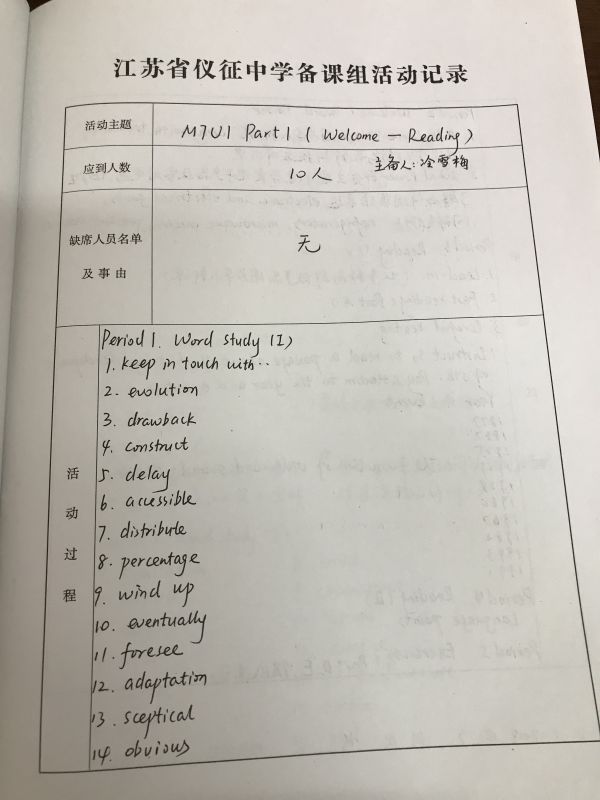 江苏省仪征中学备课组活动记录
活动主题 M7U1 Part 1 ( Welcome — Reading )
应到人数 10人 主备人:冷雪梅
缺席人员名单
及事由 无
活动过程
Period 1. Word study (I)
1. keep in touch with··
2. evolution
3. drawback
4. construct
5. delay
6. accessible
7. distribute
8. percentage
9. wind up
10. eventually
11. foresee
12. adaptation
13. sceptical
14. obvious